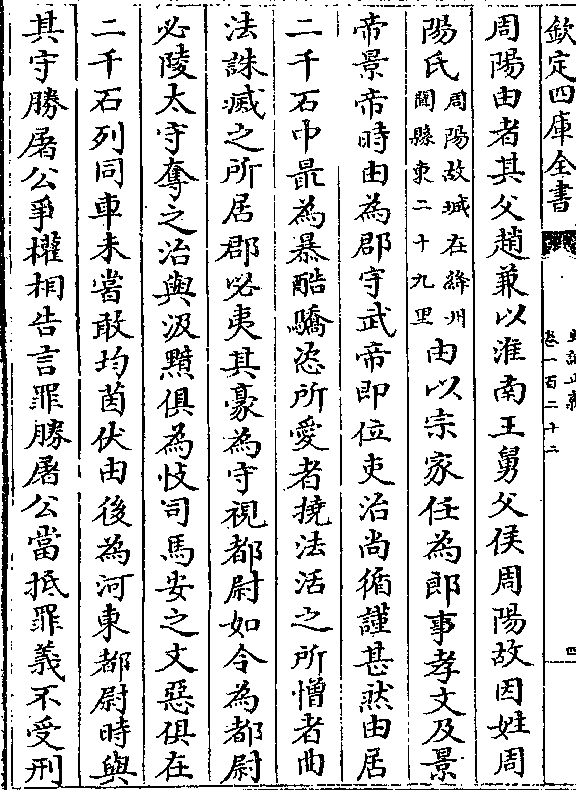 欽定四庫全書
史記正義
卷一百二十二
四
周陽由者其父趙兼以淮南王舅父侯周陽故因姓周
陽氏周陽故城在絳州聞縣東二十九里由以宗家任為郎事孝文及景
帝景帝時由為郡守武帝即位吏治尚循謹甚然由居
二千石中最為暴酷驕恣所愛者撓法活之所憎者曲
法誅滅之所居郡必夷其豪為守視都尉如令為都尉
必陵太守奪之治與汲黯俱為忮司馬安之文惡俱在
二千石列同車未嘗敢均茵伏由後為河東都尉時與
其守勝屠公爭權相告言罪勝屠公當抵罪義不受刑